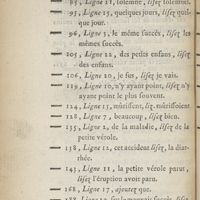 — 85, Ligne 11, solemne, lisez solemnel.
— 93, Ligne 25, quelques jours, lisez quel-
que jour.
— 96, Ligne 5, le même succès, lisez les
mêmes succès.
— 105, Ligne 22, des petits enfans, lisez
des enfans.
— 106, Ligne 20, je fus, lisez je vais.
— 119, Ligne 10, n'y ayant point, lisez n'y
ayant point le plus souvent.
— 124, Ligne 13, mûrissent, liz. mûrissoient
— 128, Ligne 7, beaucoup, lisez bien.
— 135, Ligne 2, de la maladie, lisez de la
petite vérole.
— 138, Ligne 12, cet accident lisez, la diar-
rhée.
— 143, Ligne 11, la petite vérole parut,
lisez l'éruption avoit paru.
— 168, Ligne 17, ajoutez que.
— 188, Ligne